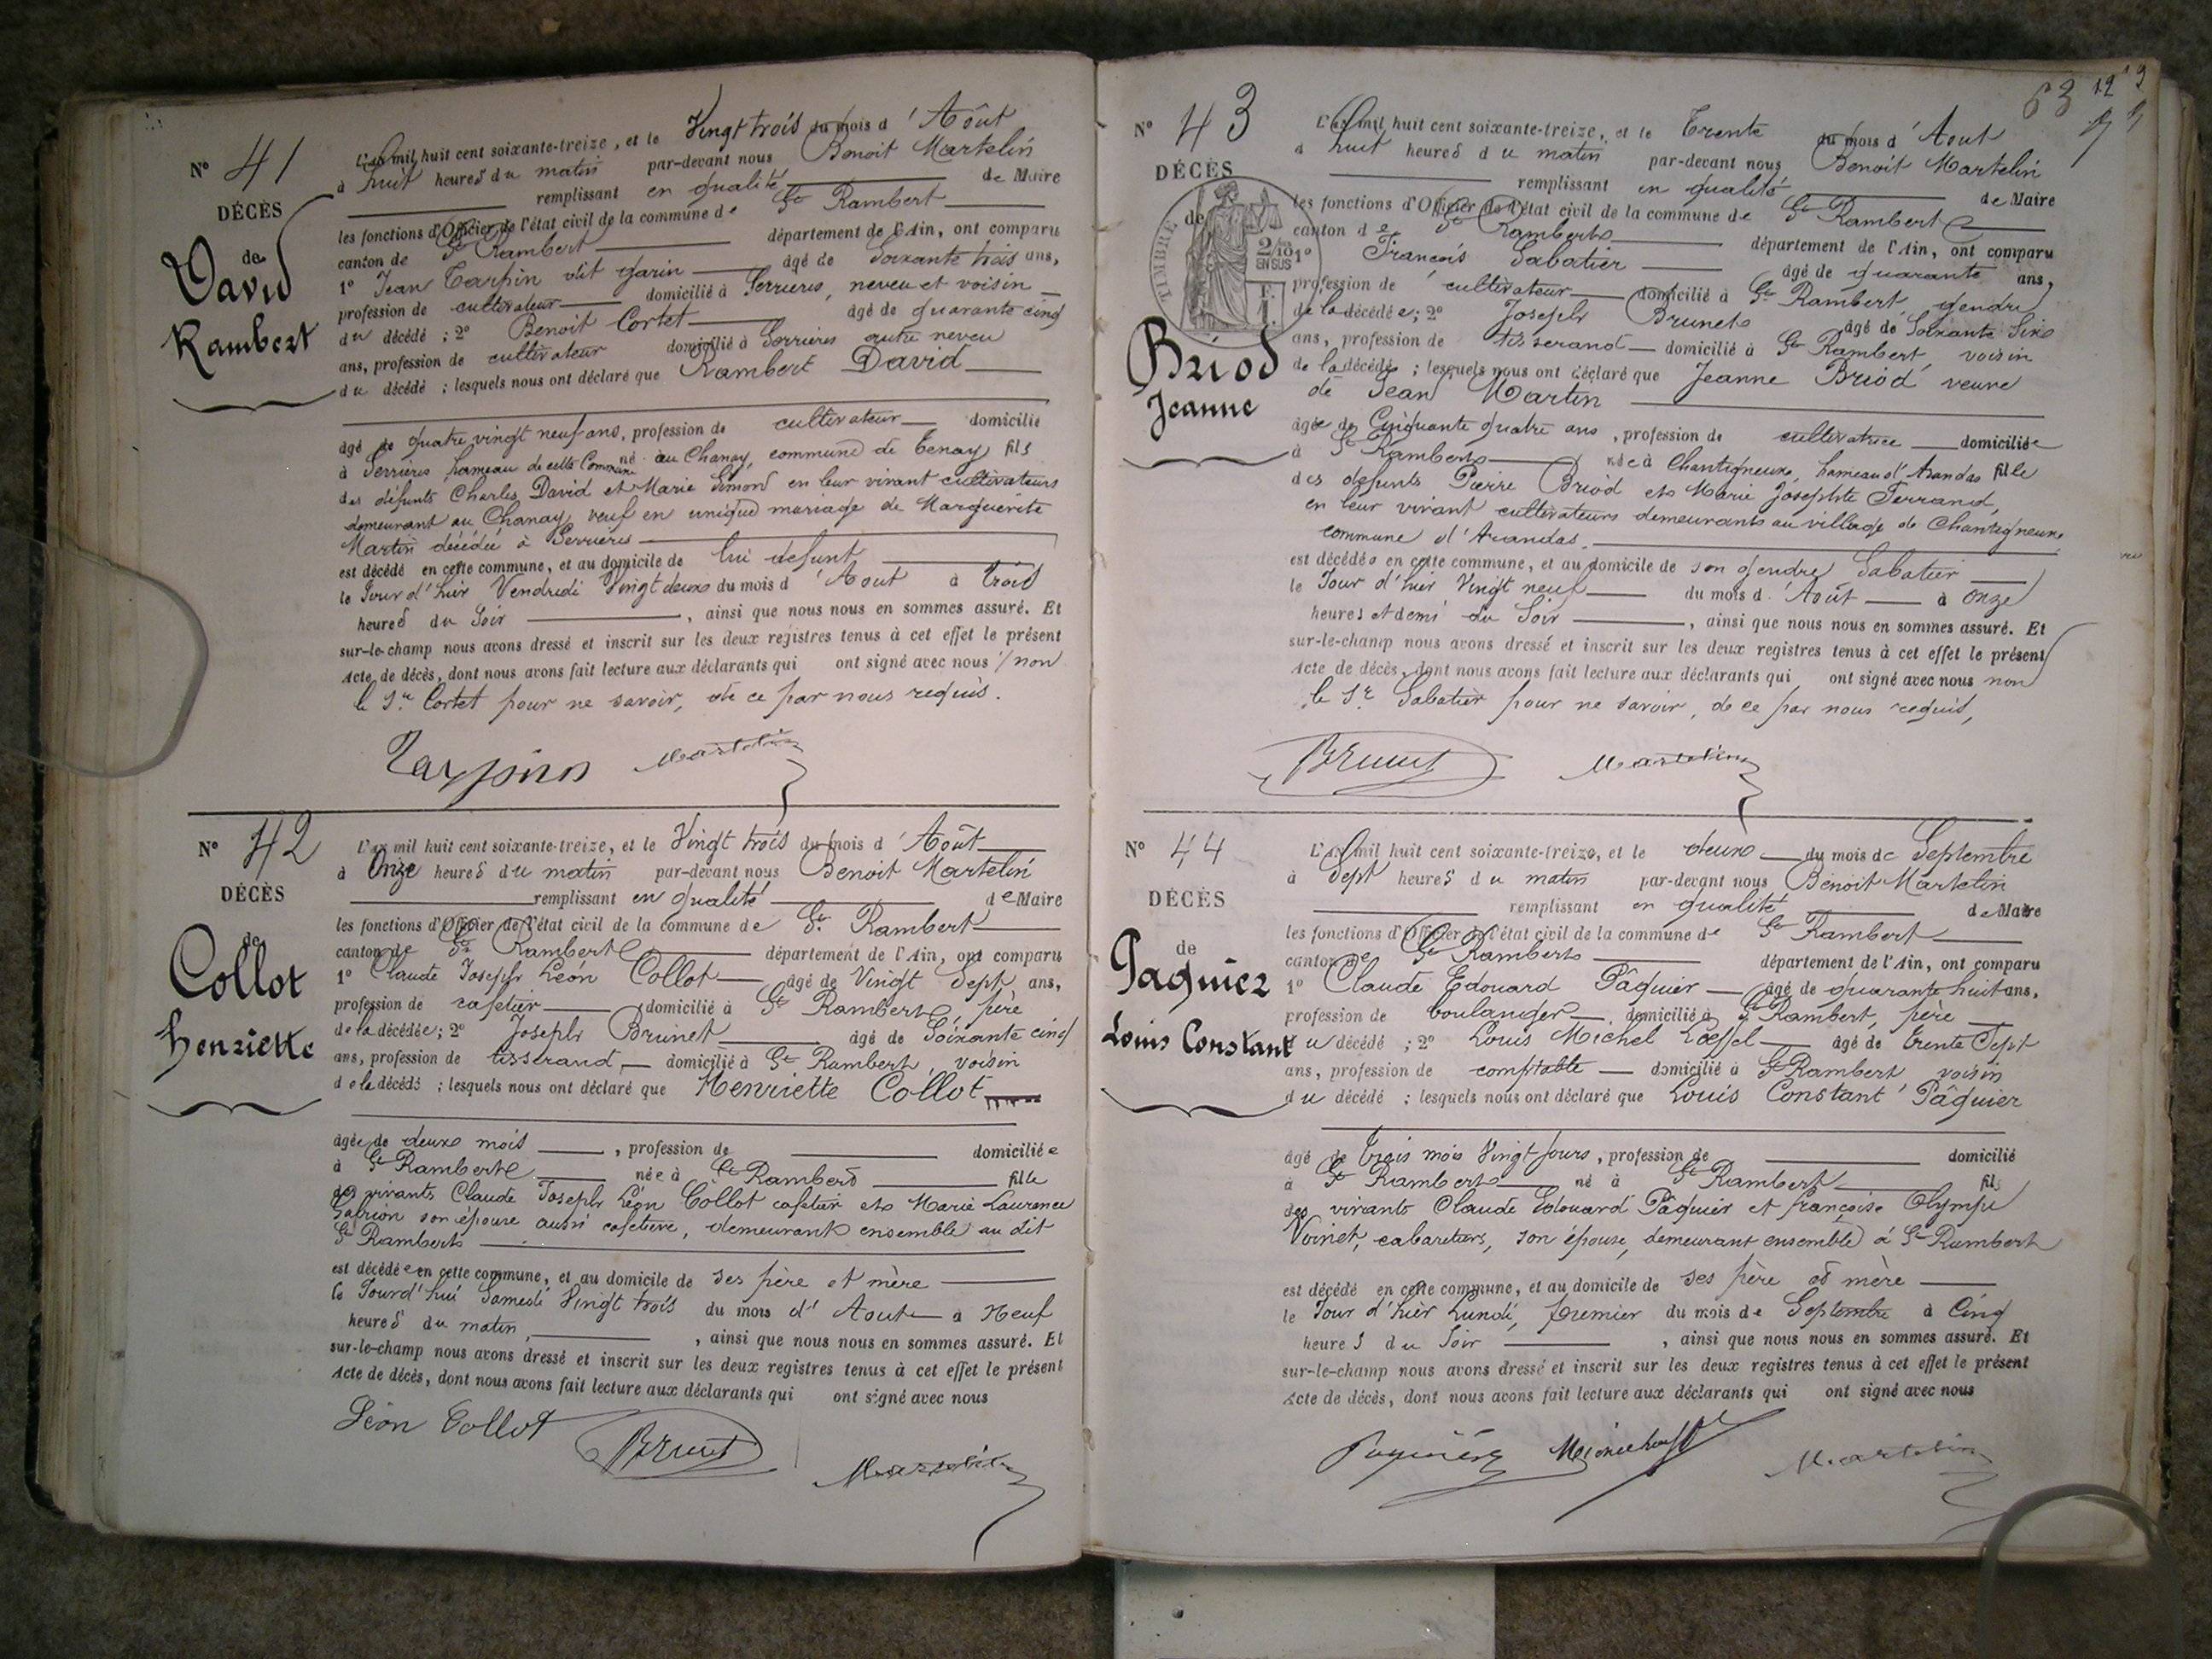 N° 41
DÉCÈS
de
David
Rambert
L'an mil huit cent soixante-treize, et le Vingt trois du mois d'Août
à huit heures du matin par-devant nous Benoit Martelin
remplissant en qualité de Maire
les fonctions d'Officier de l'état civil de la commune de St Rambert
canton de St Rambert département de l'Ain, ont comparu
1° Jean Tarpin dit garin âgé de Soixante trois ans,
profession de cultivateur domicilié à Serrières, neveu et voisin
du décédé ; 2° Benoit Cortet âgé de quarante cinq
ans, profession de cultivateur domicilié à Serrières autre neveu
du décédé ; lesquels nous ont déclaré que Rambert David
âgé de quatre vingt neuf ans, profession de cultivateur domicilié
à Serrières hameau de cette Commune né au Chanay, commune de Tenay fils
des défunts Charles David et Marie Simond en leur vivant cultivateurs
demeurant au Chanay, veuf en unique mariage de Marguerite
Martin décédée à Serrières
est décédé en cette commune, et au domicile de lui defunt
le Jour d'hier Vendredi Vingt deux du mois d'Aout à trois
heures du Soir , ainsi que nous nous en sommes assuré. Et
sur-le-champ nous avons dressé et inscrit sur les deux registres tenus à cet effet le présent
Acte de décès, dont nous avons fait lecture aux déclarants qui ont signé avec nous / non
le Sr Cortet pour ne savoir, de ce par nous requis.
Tarpin Martelin
N° 42
DÉCÈS
de
Collot
henriette
L'an mil huit cent soixante-treize, et le Vingt trois du mois d'Août
à Onze heures du matin par-devant nous Benoit Martelin
remplissant en qualité de Maire
les fonctions d'Officier de l'état civil de la commune de St Rambert
canton de St Rambert département de l'Ain, ont comparu
1° Claude Joseph Léon Collot âgé de Vingt Sept ans,
profession de cafetier domicilié à St Rambert, père
de la décédée ; 2° Joseph Brunet âgé de Soixante cinq
ans, profession de tisserand domicilié à St Rambert, voisin
de la décédé ; lesquels nous ont déclaré que Henriette Collot
âgée de deux mois , profession de domiciliée
à St Rambert née à St Rambert fille
des vivants Claude Joseph Léon Collot cafetier et Marie Laurence
son épouse aussi cafetière, demeurant ensemble au dit
St Rambert
est décédée en cette commune, et au domicile de ses père et mère
le Jourd'hui Samedi Vingt trois du mois d'Aout à Neuf
heures du matin , ainsi que nous nous en sommes assuré. Et
sur-le-champ nous avons dressé et inscrit sur les deux registres tenus à cet effet le présent
Acte de décès, dont nous avons fait lecture aux déclarants qui ont signé avec nous
Léon Collot Brunet Martelin
63 12
N° 43
DÉCÈS
de
TIMBRE
2/10
EN SUS
Briod
Jeanne
L'an mil huit cent soixante-treize, et le Trente du mois d'Aout
à huit heures du matin par-devant nous Benoit Martelin
remplissant en qualité de Maire
les fonctions d'Officier de l'état civil de la commune de St Rambert
canton de St Rambert département de l'Ain, ont comparu
1° François Sabatier âgé de quarante ans,
profession de cultivateur domicilié à St Rambert, gendre
de la décédée ; 2° Joseph Brunet âgé de Soixante Six
ans, profession de tisserand domicilié à St Rambert, voisin
de la décédée ; lesquels nous ont déclaré que Jeanne Briod veuve
de Jean Martin
âgée de Cinquante quatre ans , profession de cultivatrice domiciliée
à St Rambert née à Chantigneux, hameau d'Arandas fille
des defunts Pierre Briod et Marie Josephte Ferrand,
en leur vivant cultivateurs demeurants au village de Chantigneux
commune d'Arandas.
est décédée en cette commune, et au domicile de son gendre Sabatier
le Jour d'hier Vingt neuf du mois d'Août à Onze
heures et demi du Soir , ainsi que nous nous en sommes assuré. Et
sur-le-champ nous avons dressé et inscrit sur les deux registres tenus à cet effet le présent
Acte de décès, dont nous avons fait lecture aux déclarants qui ont signé avec nous non
le Sr Sabatier pour ne savoir, de ce par nous requis,
Brunet Martelin
N° 44
DÉCÈS
de
Paquier
Louis Constant
L'an mil huit cent soixante-treize, et le deux du mois de Septembre
à Sept heures du matin par-devant nous Benoit Martelin
remplissant en qualité de Maire
les fonctions d'Officier de l'état civil de la commune de St Rambert
canton de St Rambert département de l'Ain, ont comparu
1° Claude Edouard Pâquier âgé de quarante huit ans,
profession de boulanger domicilié à St Rambert, père
du décédé ; 2° Louis Michel Loeffel âgé de trente Sept
ans, profession de comptable domicilié à St Rambert voisin
du décédé ; lesquels nous ont déclaré que Louis Constant Pâquier
âgé de trois mois Vingt Jours, profession de domicilié
à St Rambert né à St Rambert fils
des vivants Claude Edouard Pâquier et françoise Olympe
Voinet, cabaretiers, son épouse, demeurant ensemble à St Rambert
est décédé en cette commune, et au domicile de ses père et mère
le Jour d'hier Lundi, premier du mois de Septembre à Cinq
heures du Soir , ainsi que nous nous en sommes assuré. Et
sur-le-champ nous avons dressé et inscrit sur les deux registres tenus à cet effet le présent
Acte de décès, dont nous avons fait lecture aux déclarants qui ont signé avec nous
Martelin